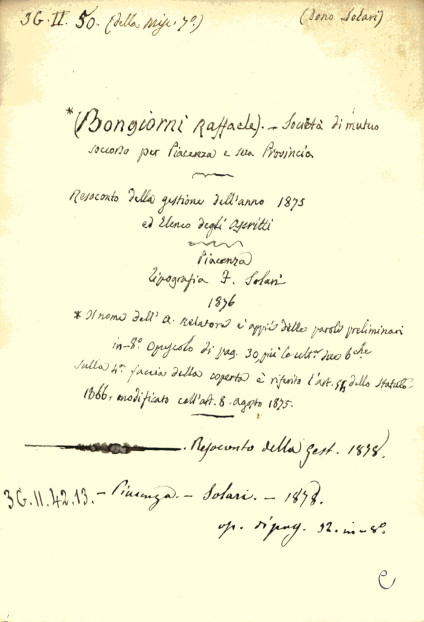 3G. II. 50. (della Misc. 7ª.) (Dono Solari)
*(Bongiorni Raffaele). – Società di mutuo
soccorso per Piacenza e sua Provincia
Resoconto della gestione dell'anno 1875
ed Elenco degli Ascritti
Piacenza
Tipografia F. Solari
1876
* Il nome dell' A. relatore è appiè delle parole preliminari
in-8.º Opuscolo di pag. 30 più le ult. due bche
sulla 4ª. faccia della coperta è riferito l'art. dello Statuto
1866. modificato coll'alt. 8. agosto 1875.
Resoconto della gest. 1878.
3G. II. 42. 13. – Piacenza. – Solari. – 1878.
op. di pag. 32. in-8º.